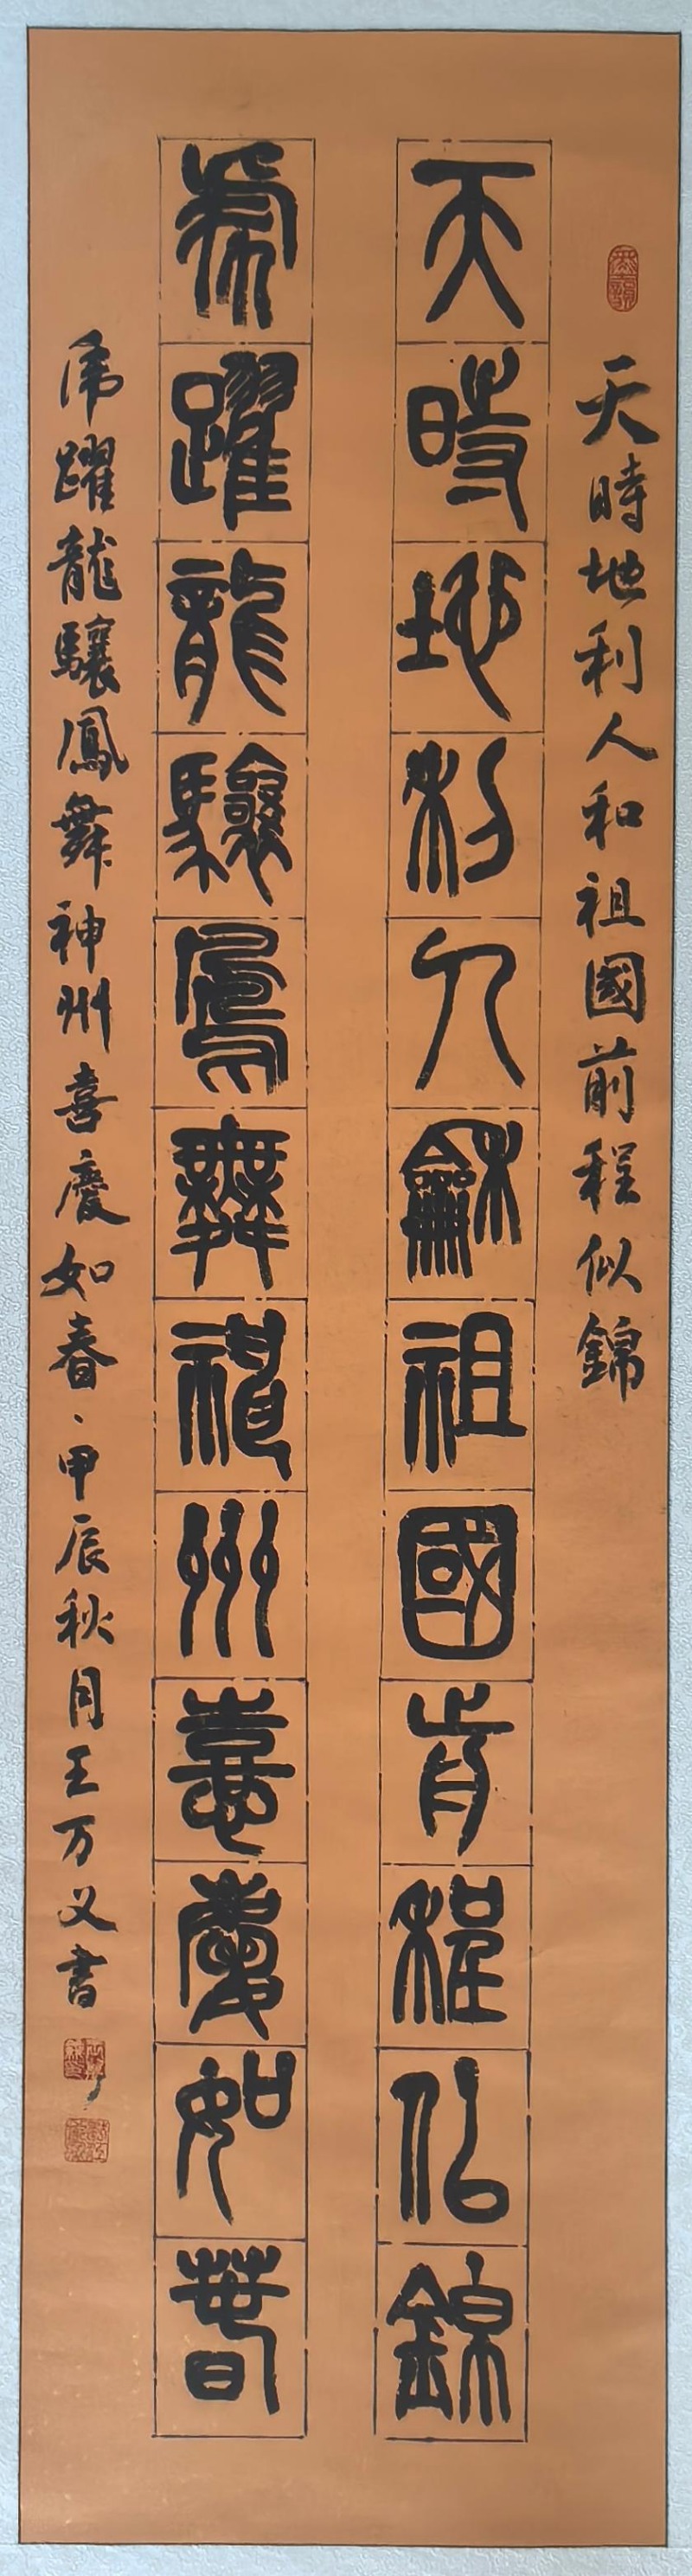 天時地利人和祖國前程似錦
天時地利人龢祖國前程似錦
虎躍龍驤鳳舞神州喜慶如春
虎躍龍驤鳳舞神州喜慶如春、甲辰秋月王万义書